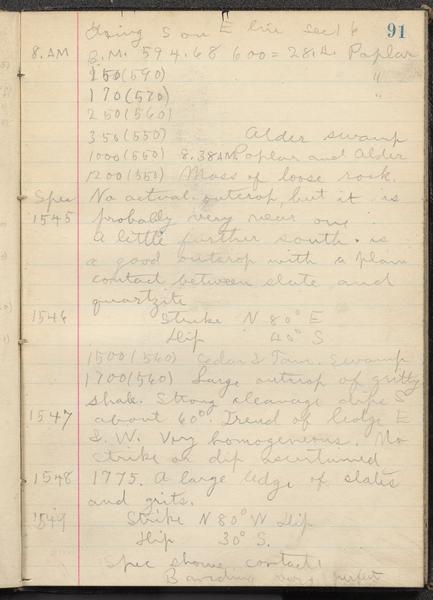 Going S on E line sec 16
91
8. AM B.M. 594.68 600 = 28 ft. Poplar
150 (590) "
170 (570) "
250 (560)
350 (550) Alder swamp
1000 (550) 8.38 AM. Poplar and Alder
1200 (550) Mass of loose rock.
Spec No actual outcrop, but it is
1545 probably very near one
A little further south is
a good outcrop with a plain
contact between slate and
quartzite
1546 Strike N 80° E
Hip 40° S
1500 (560) Cedar & Tam. Swamp
1700 (560) Large outcrop of gritty
shale. Strong cleavage dips S
1547 about 60°. Trend of ledge E
& W. Very homogeneous. No
strike or dip ascertained
1548 1775. A large ledge of slates
and grits.
1549 Strike N 80° W Hip
Hip 30° S.
Spec shows contact
Banding very perfect